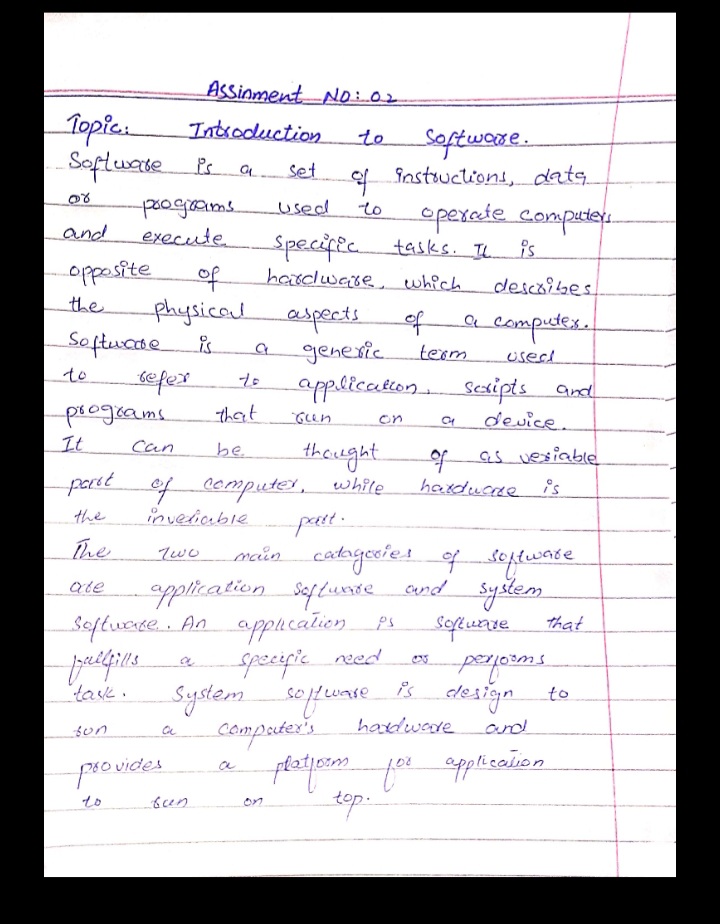 Assinment NO: 02
Topic: Introduction to Software.
Software is a set of instructions, data
or programs used to operate computers
and execute specific tasks. It is
opposite of hardware, which describes
the physical aspects of a computer.
Software is a generic term used
to refer to application, scripts and
programs that run on a device.
It can be thought of as veriable
part of computer, while hardware is
the inveriable part.
The two main catagories of software
are application software and system
software. An application is software that
fullfills a specific need or performs
task. System software is design to
run a computer's hardware and
provides a platform for application
to run on top.